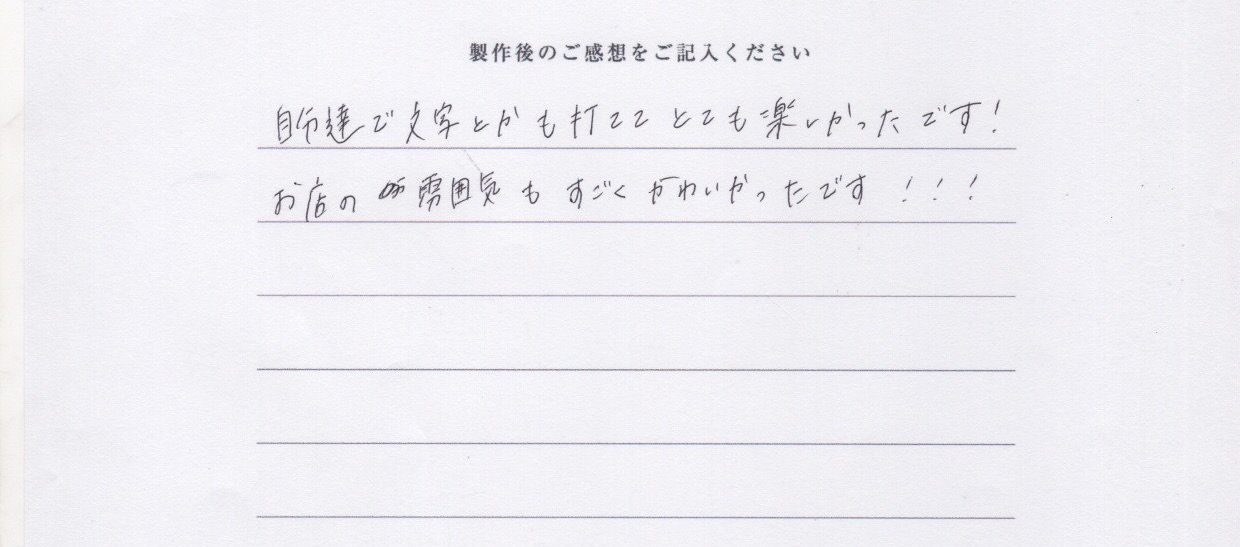 製作後のご感想をご記入ください
自分達で文字とかも打ててとても楽しかったです!
お店の雰囲気もすごくかわいかったです!!!